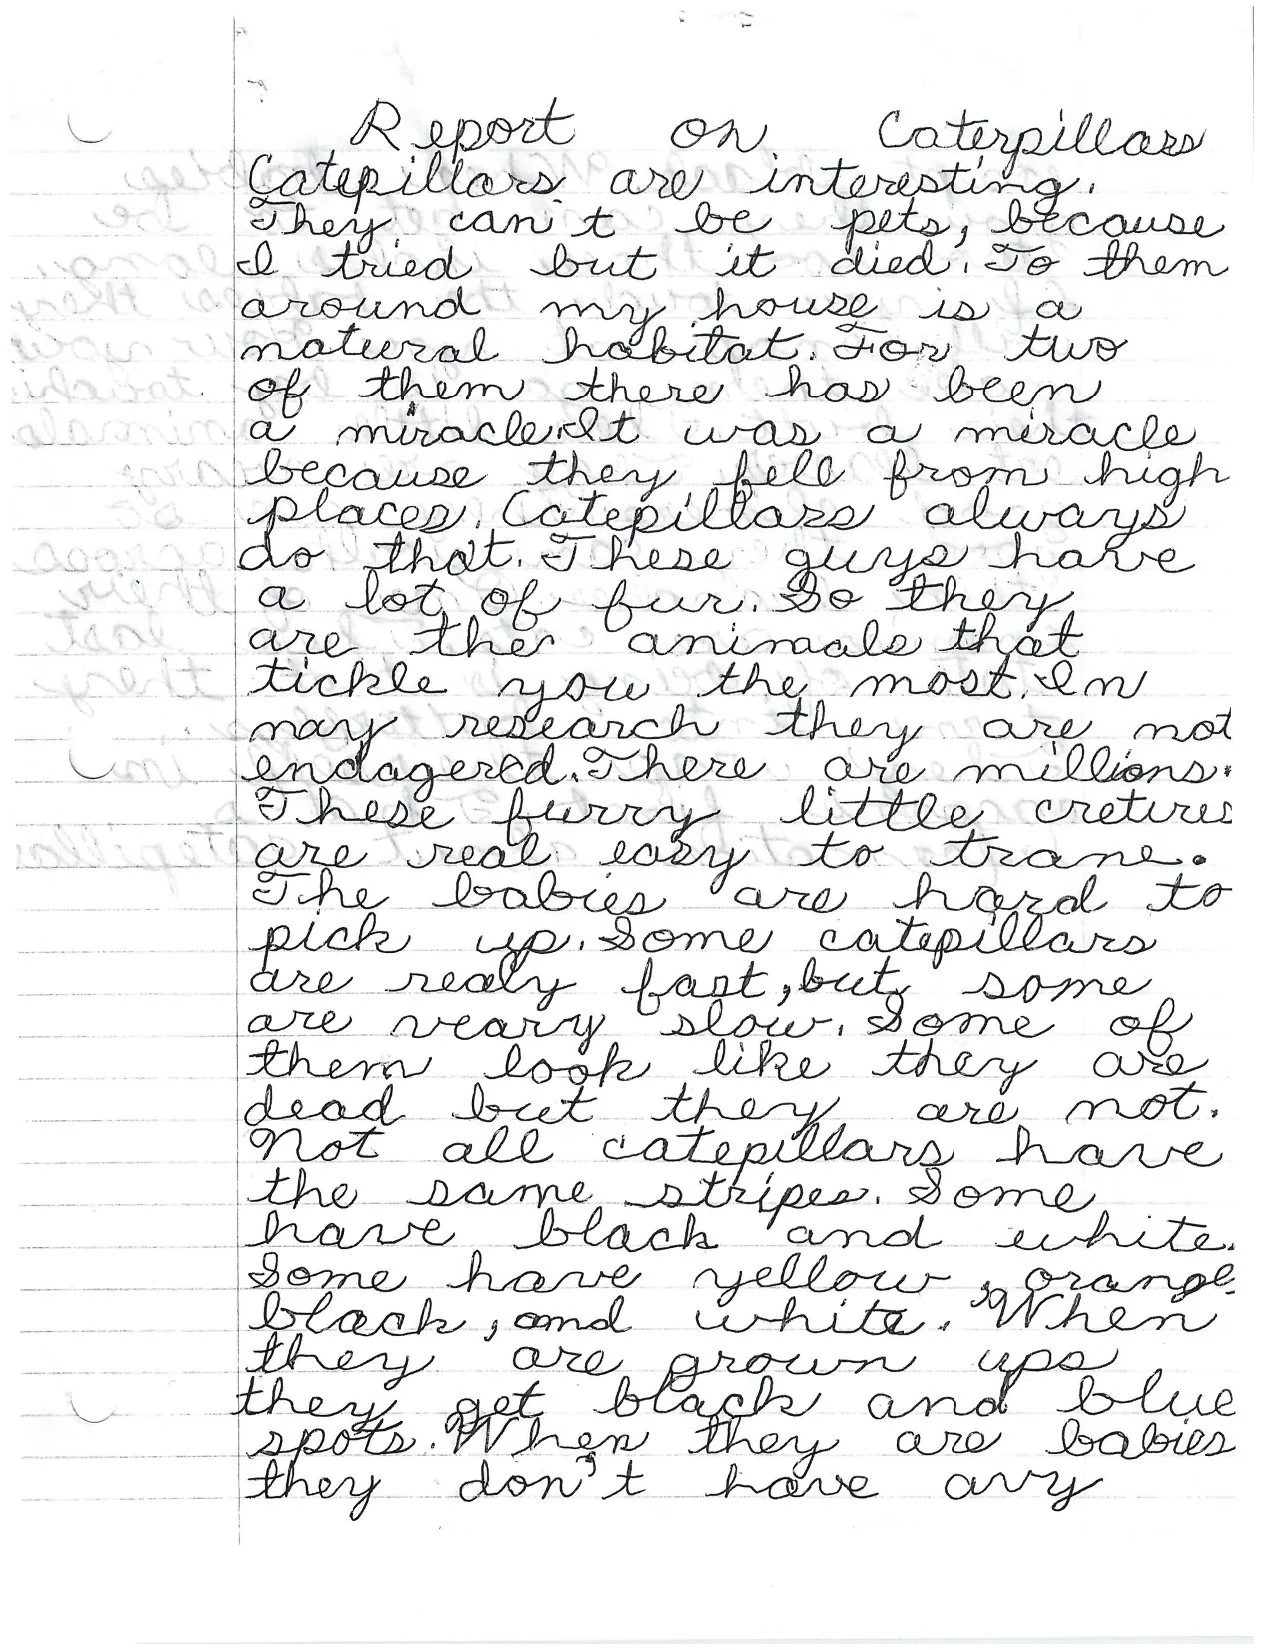 Report on Caterpillars
Catepillars are interesting.
They can't be pets, because
I tried but it died. To them
around my house is a
natural habitat. For two
of them there has been
a miracle. It was a miracle
because they fell from high
places. Catepillars always
do that. These guys have
a lot of fur. So they
are the animals that
tickle you the most. In
my research they are not
endagered. There are millions.
These furry little cretures
are real easy to trane.
The babies are hard to
pick up. Some catepillars
are realy fast, but some
are veary slow. Some of
them look like they are
dead but they are not.
Not all catepillars have
the same stripes. Some
have black and white.
Some have yellow, orange,
black, and white. When
they are grown ups
they get black and blue
spots. When they are babies
they don't have any